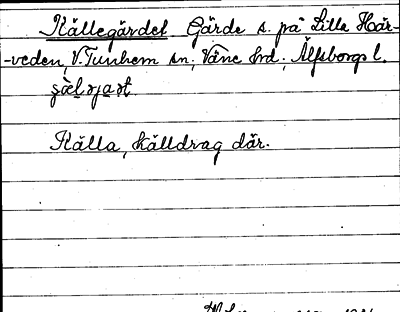 Källegärdet Gärde s. på Lilla Hoär-
-veden, V. Tunhem sn, Väne hrd, Älfsborgs l.
Källa, källdrag där.